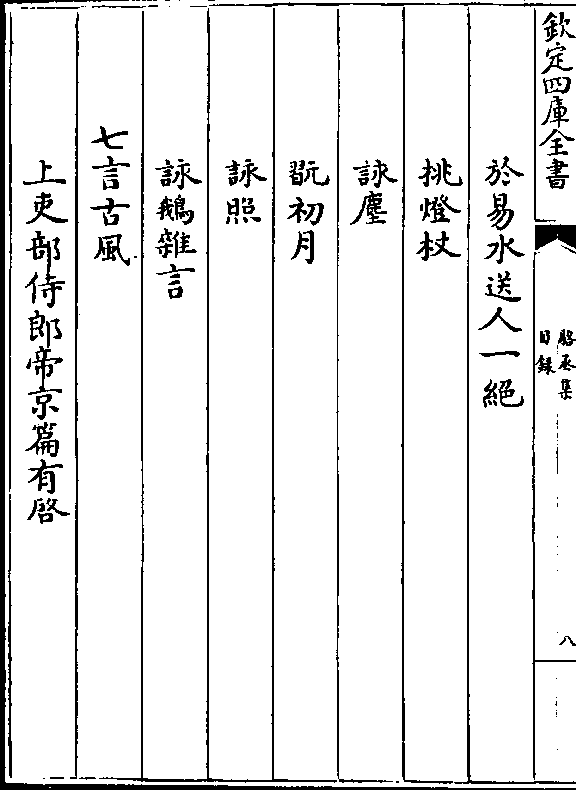 欽定四庫全書
駱丞集
目録
八
於易水送人一絕
挑燈杖
詠塵
翫初月
詠照
詠鵝雜言
七言古風
上吏部侍郎帝京篇有啓